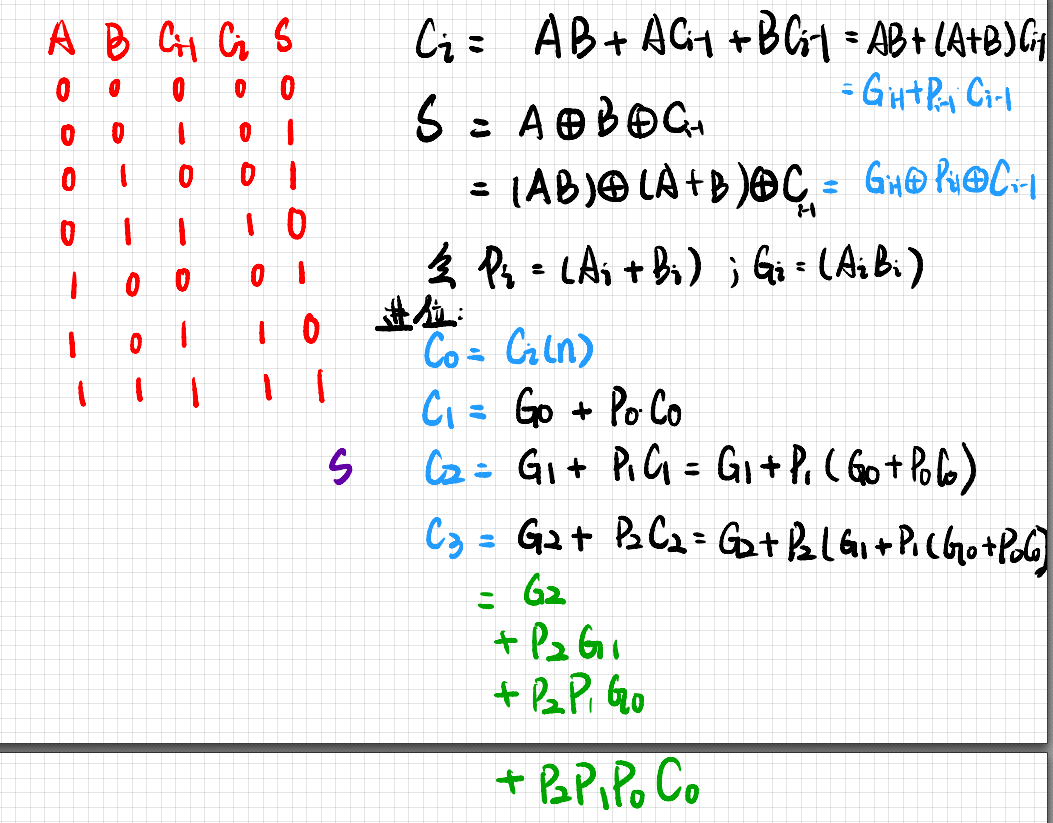 A B Ci-1 Ci S
0 0 0 0 0
0 0 1 0 1
0 1 0 0 1
0 1 1 1 0
1 0 0 0 1
1 0 1 1 0
1 1 1 1 1
Ci = AB + ACi-1 + BCi-1 = AB + (A+B)Ci-1
= Gi-1+Pi-1 Ci-1
S = A⊕B⊕Ci-1
= (AB)⊕(A+B)⊕Ci-1 = Gi-1⊕Pi-1⊕Ci-1
令 Pi = (Ai + Bi) ; Gi = (AiBi)
进位:
C0 = Ci(n)
C1 = G0 + P0·C0
S
C2 = G1 + P1C1 = G1 + P1(G0+P0C0)
C3 = G2 + P2C2 = G2+P2(G1+P1(G0+P0C0)
= G2
+ P2G1
+ P2P1G0
+ P2P1P0C0